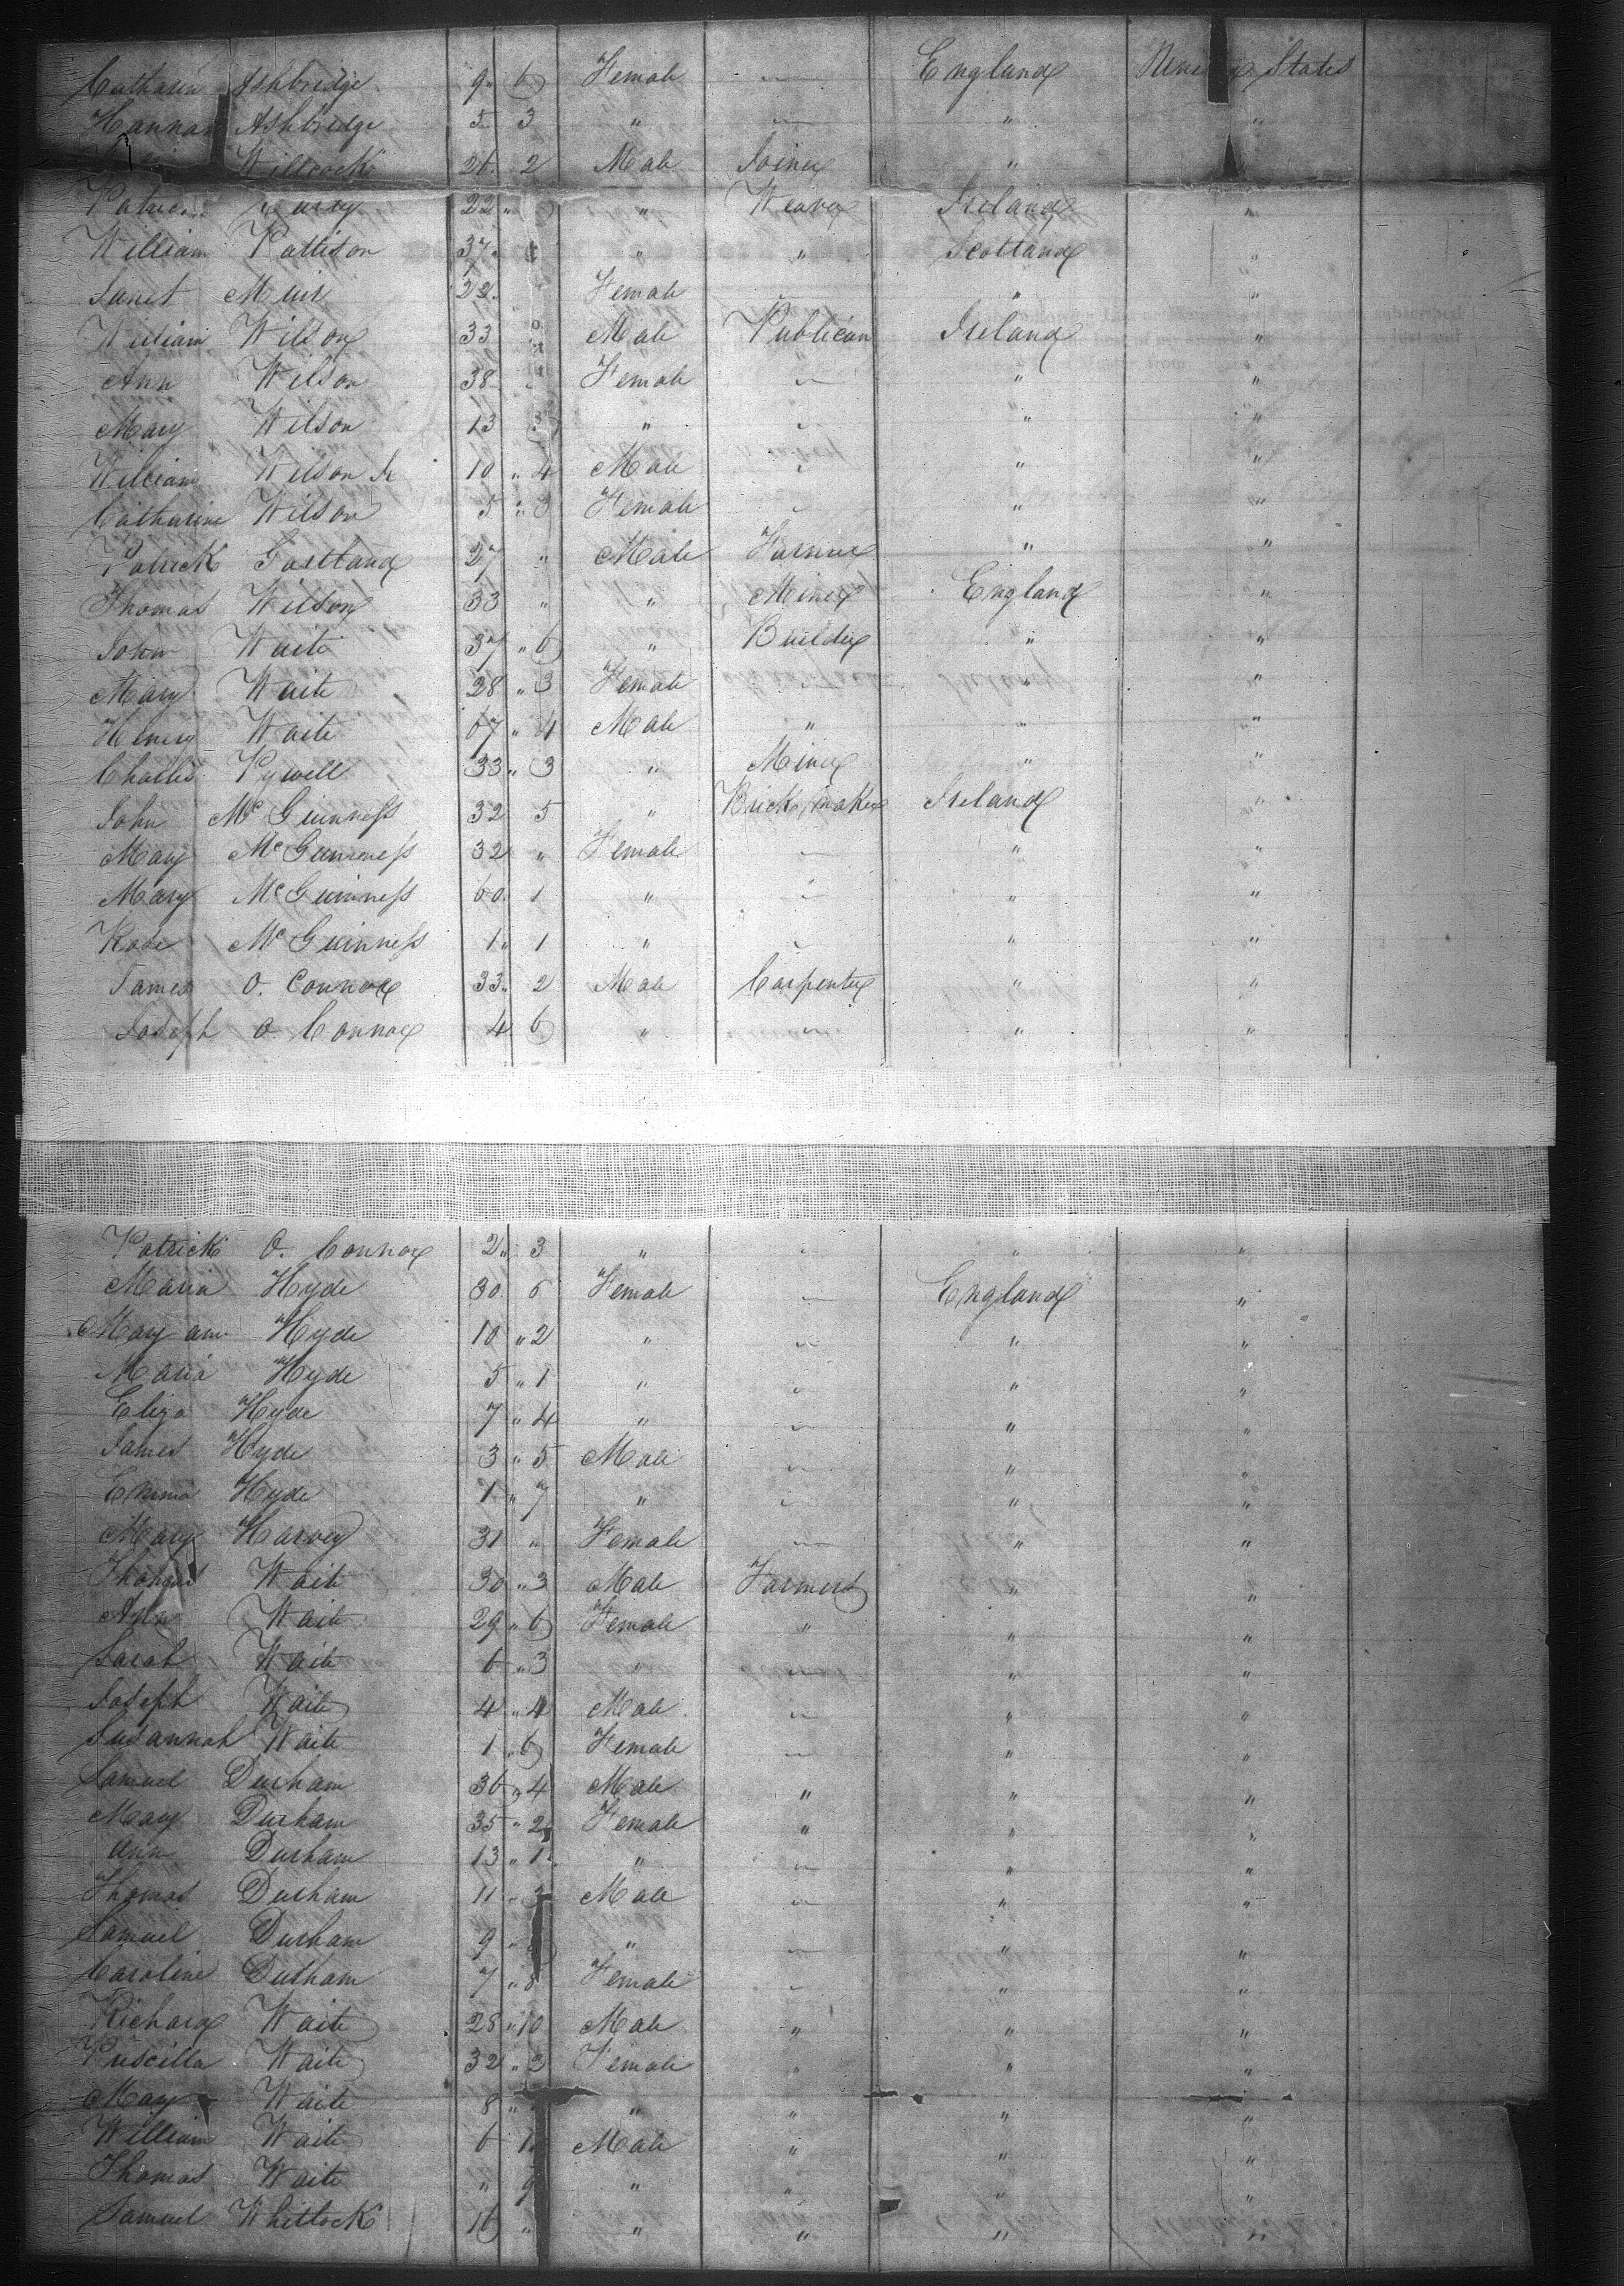 Catharin Ashbridge 9 " 6 Female — England United States
Hannah Ashbridge 5 " 3 " — " "
Willcock 26 " 2 Male Joiner " "
Patric 22 " " Weaver Ireland "
William Pattison 37 " 4 " " Scotland "
Janet Muir 22 " Female " "
William Wilson 33 Male Publican Ireland "
Ann Wilson 38 Female — " "
Mary Wilson 13 3 " — " "
William Wilson Jr 10 " 4 Male — " "
Catharine Wilson 5 " 3 Female — " "
Patrick Gartland 27 " Male Farmer " "
Thomas Wilson 33 " " Miner England "
John Waite 37 " 6 " Builder " "
Mary Waite 28 " 3 Female " "
Henry Waite 67 " 4 Male " " "
Charles Pywell 33 " 3 " Miner " "
John McGuinness 32 5 " Brick maker Ireland "
Mary McGuinness 32 " Female — " "
Mary McGuinness 60 1 " — " "
Rose McGuinness 1 " 1 " — " "
James O. Connor 33 " 2 Male Carpenter " "
Joseph O. Connor 4 6 " — " "
Patrick O. Connor 2 " 3 " — " "
Maria Hyde 30 6 Female — England "
Mary ann Hyde 10 " 2 " — " "
Maria Hyde 5 " 1 " — " "
Eliza Hyde 7 " 4 " — " "
James Hyde 3 " 5 Male — " "
Emma Hyde 1 " 7 " — " "
Mary Harvey 31 " Female — " "
Thomas Waite 30 " 3 Male Farmers " "
Ann Waite 29 " 6 Female " " "
Sarah Waite 6 " 3 " — " "
Joseph Waite 4 " 4 Male — " "
Susannah Waite 1 " 6 Female — " "
Samuel Durham 36 " 4 Male " " "
Mary Durham 35 " 2 Female " " "
Ann Durham 13 " 1 " — " "
Thomas Durham 11 " 3 Male — " "
Samuel Durham 9 " " — " "
Caroline Durham 7 " 8 Female — " "
Richard Waite 28 " 10 Male " " "
Priscilla Waite 32 " 2 Female " " "
Mary Waite 8 " " " " "
William Waite 6 1 Male " " "
Thomas Waite " 9 " " " "
Samuel Whitlock 16 " " " " "